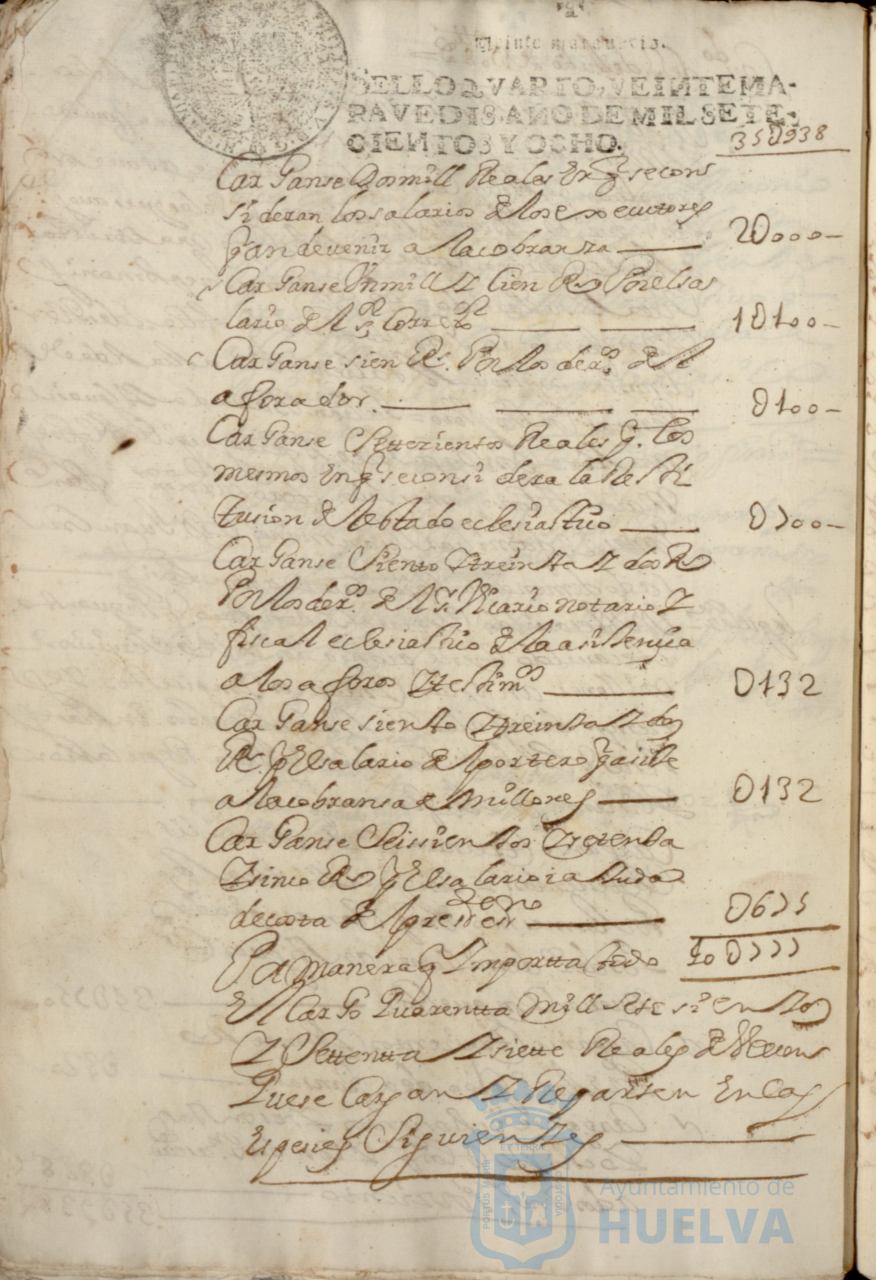 SELLO QVARTO, VEINTE MA-
RAVEDIS, AÑO DE MIL SETE-
CIENTOS Y OCHO.
35U938
Carganse Dosmill Reales En q se cons
sideran los salarios de los executores
q an de venir a la cobranza 2U000
Carganse Un mill Y Cien Rs Por el sa
lario del Sor Corregor 1U100
Carganse sien Rs. Por los deros del
aforador. U100
Carganse Settezientos Reales q. los
mesmos En q se considera la Resti
tusion del estado eclesiastico U700
Carganse Siento Y treinta Y dos Rs
Por los deros del Sr. Vicario notario Y
fiscal eclesiastico de la asistenzia
a los aforos Y testimos U132
Carganse siento Y treinta Y dos
Rs. Por el salario del portero q asiste
a la cobransa de millones U132
Carganse Seissientos Y setenta
Y sinco Rs Por el salario i aiuda
de costa del presente U675
Pa manera q Importta todo 40U777
El Cargo Quarentta Mill Setesientos
Y Settentta Y siette Reales de Vellon
Que se Cargan Y Reparten En las
Espesies Siguientes
Ayuntamiento de
HUELVA